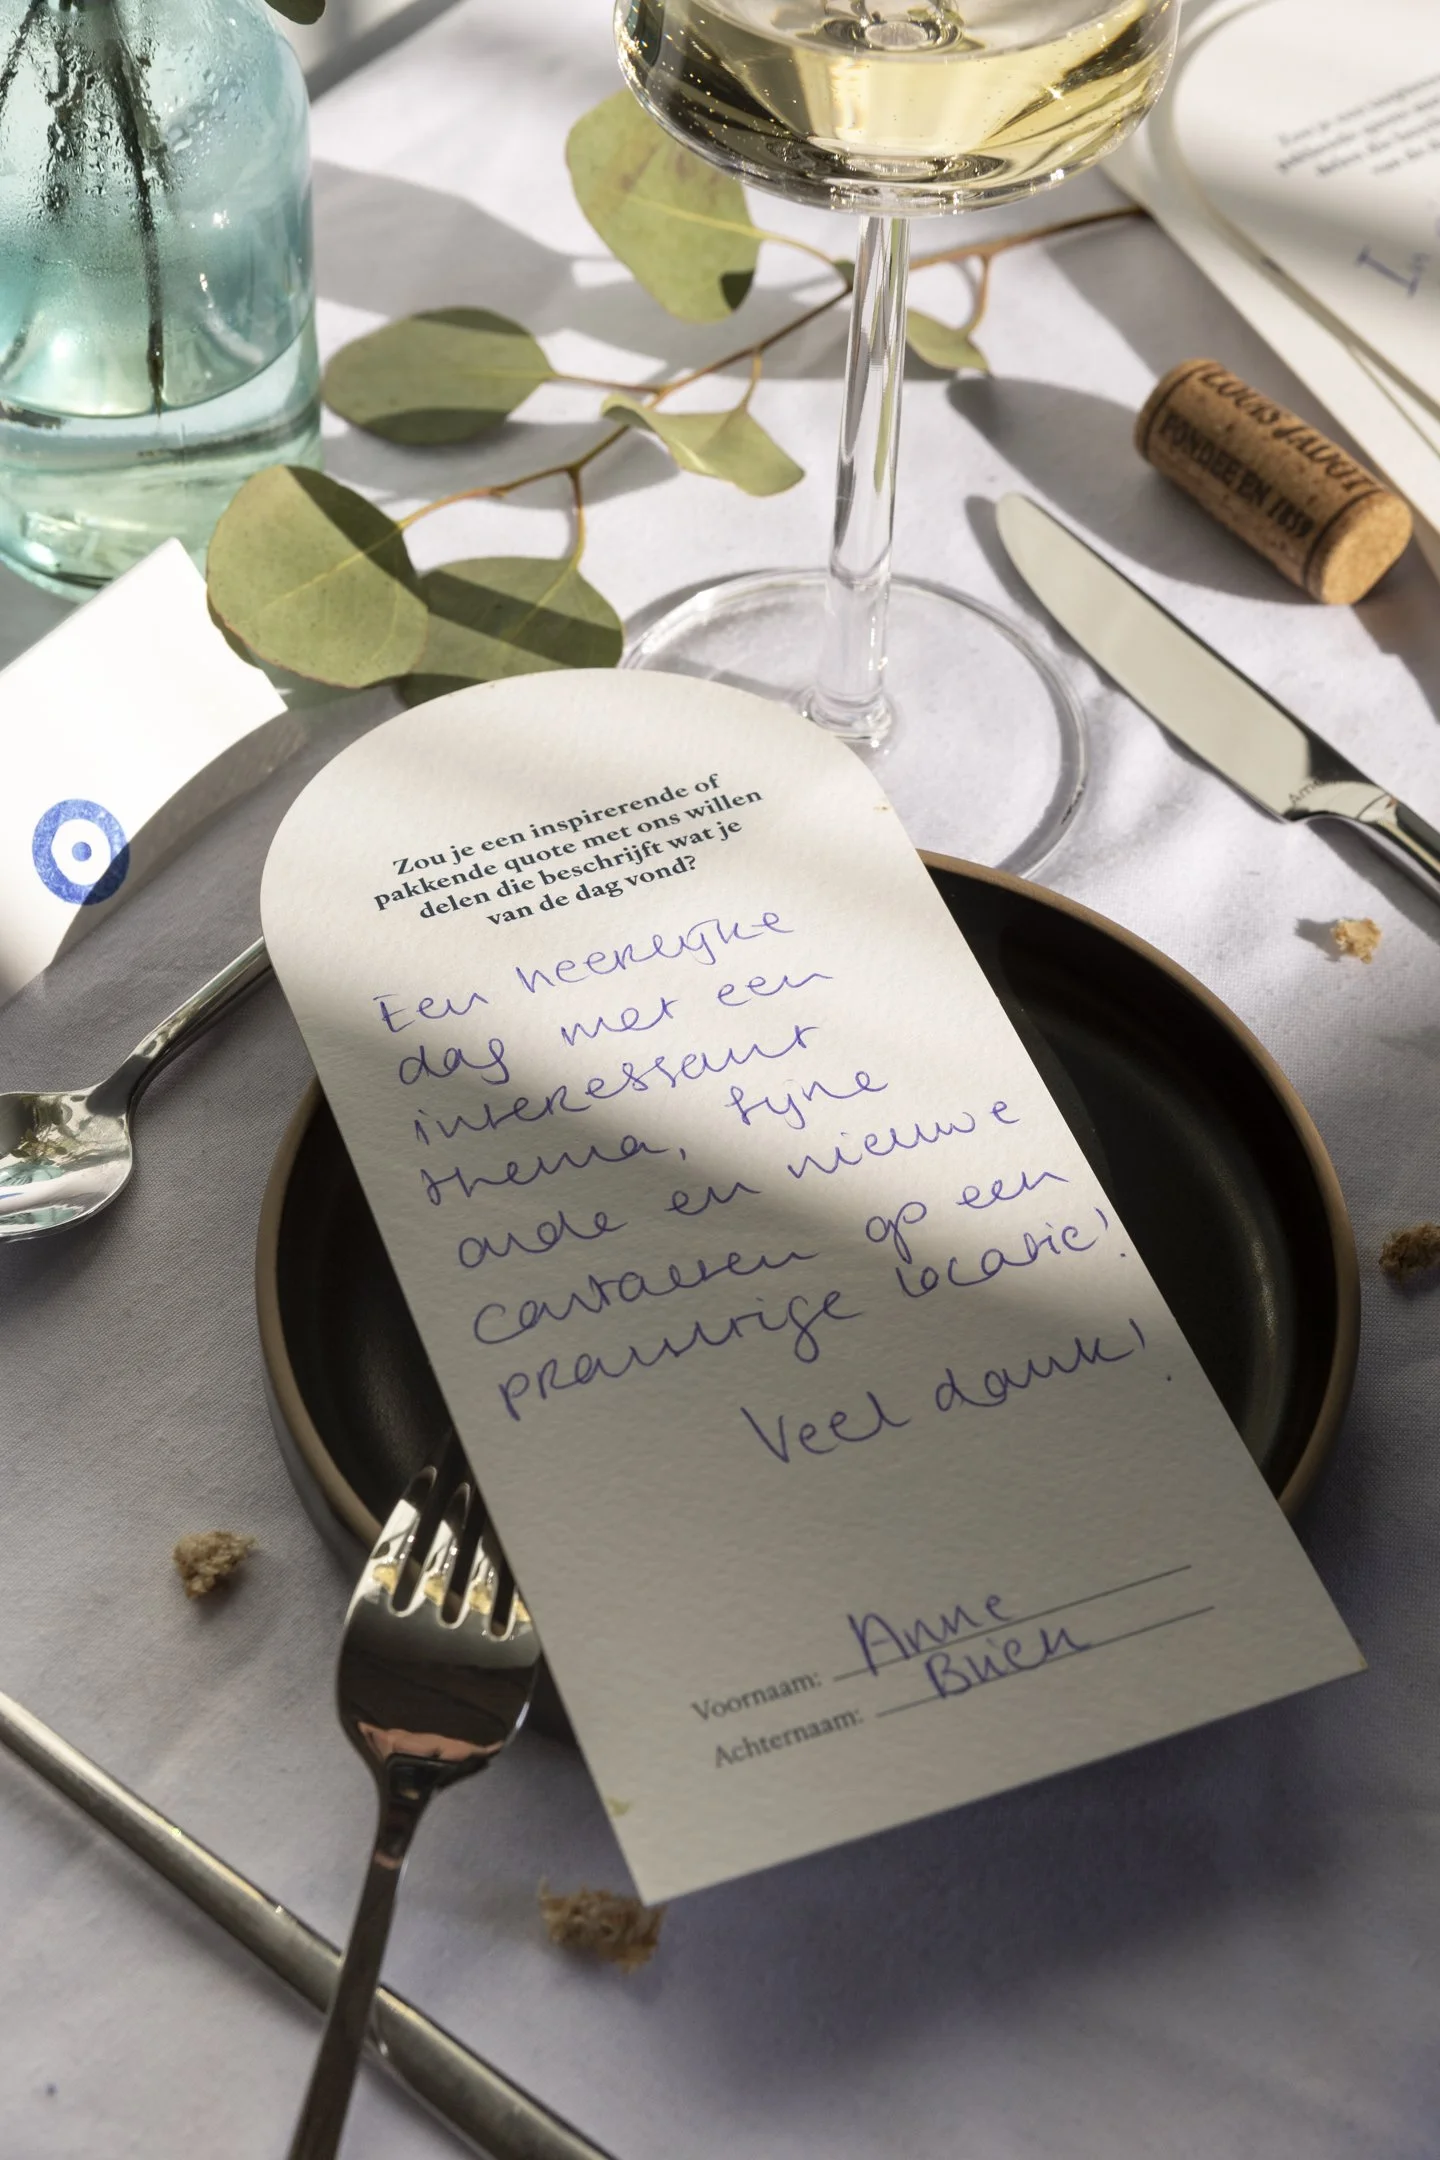 LOUIS JADOT
FONDEE EN 1859
Zou je een inspirerende of
pakkende quote met ons willen
delen die beschrijft wat je
van de dag vond?
Een heerlijke
dag met een
interessant
thema, fijne
oude en nieuwe
contacten op een
prachtige locatie!
Veel dank!
Voornaam: Anne
Achternaam: Brien